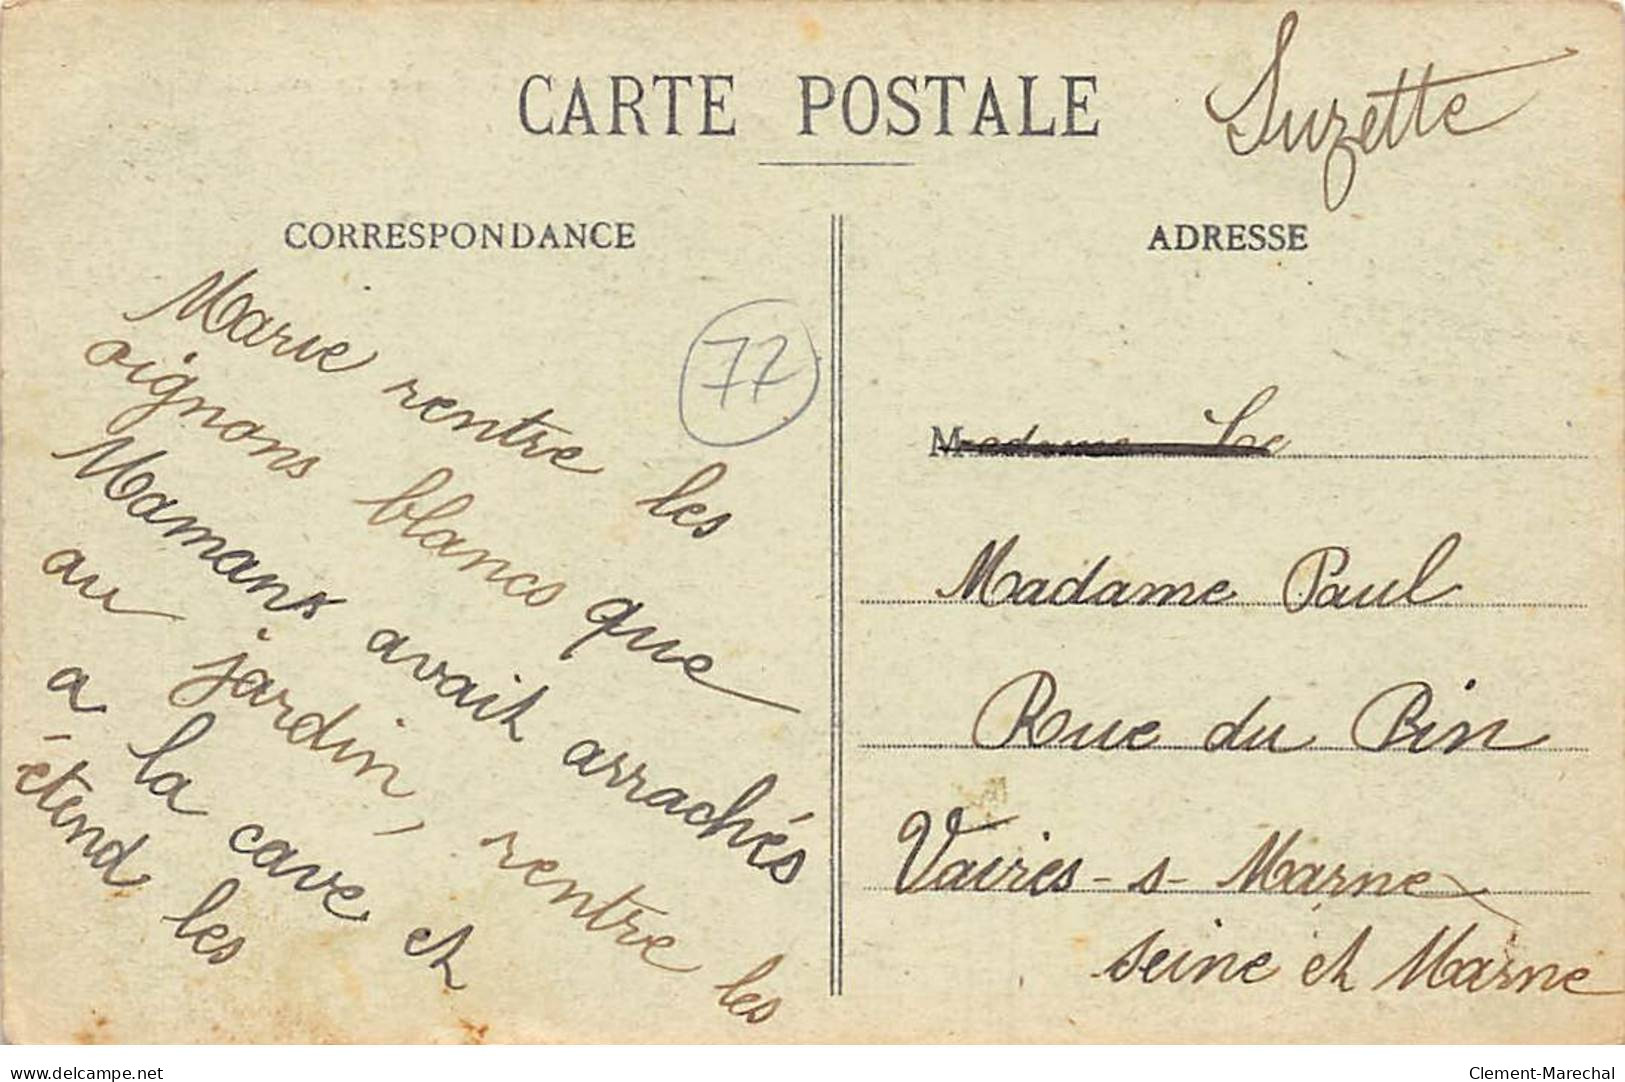 CARTE POSTALE
Suzette
CORRESPONDANCE
Marie rentre les
oignons blancs que
Maman avait arrachés
au jardin, rentre les
a la cave et
étend les
77
ADRESSE
Madame Le
Madame Paul
Rue du Pin
Vaires-s-Marne
seine et Marne
delcampe.net
Clement-Marechal